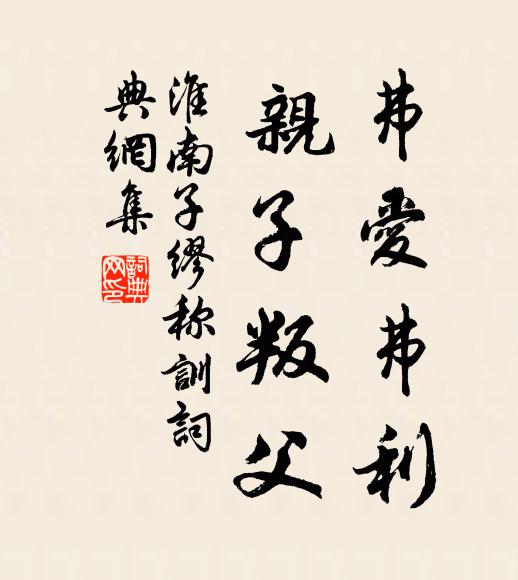 弗愛弗利
親子叛父
淮南子繆称訓詞
典網集
詞典
网印